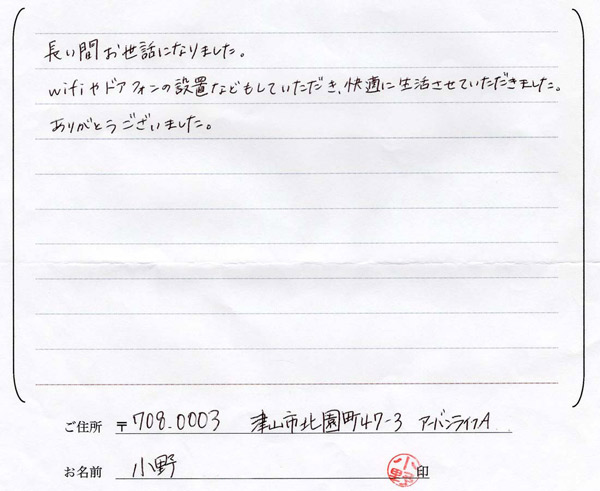 長い間お世話になりました。
wifiやドアフォンの設置などもしていただき、快適に生活させていただきました。
ありがとうございました。
ご住所 〒708-0003 津山市北園町47-3 アーバンライフA
お名前 小野 小野 印